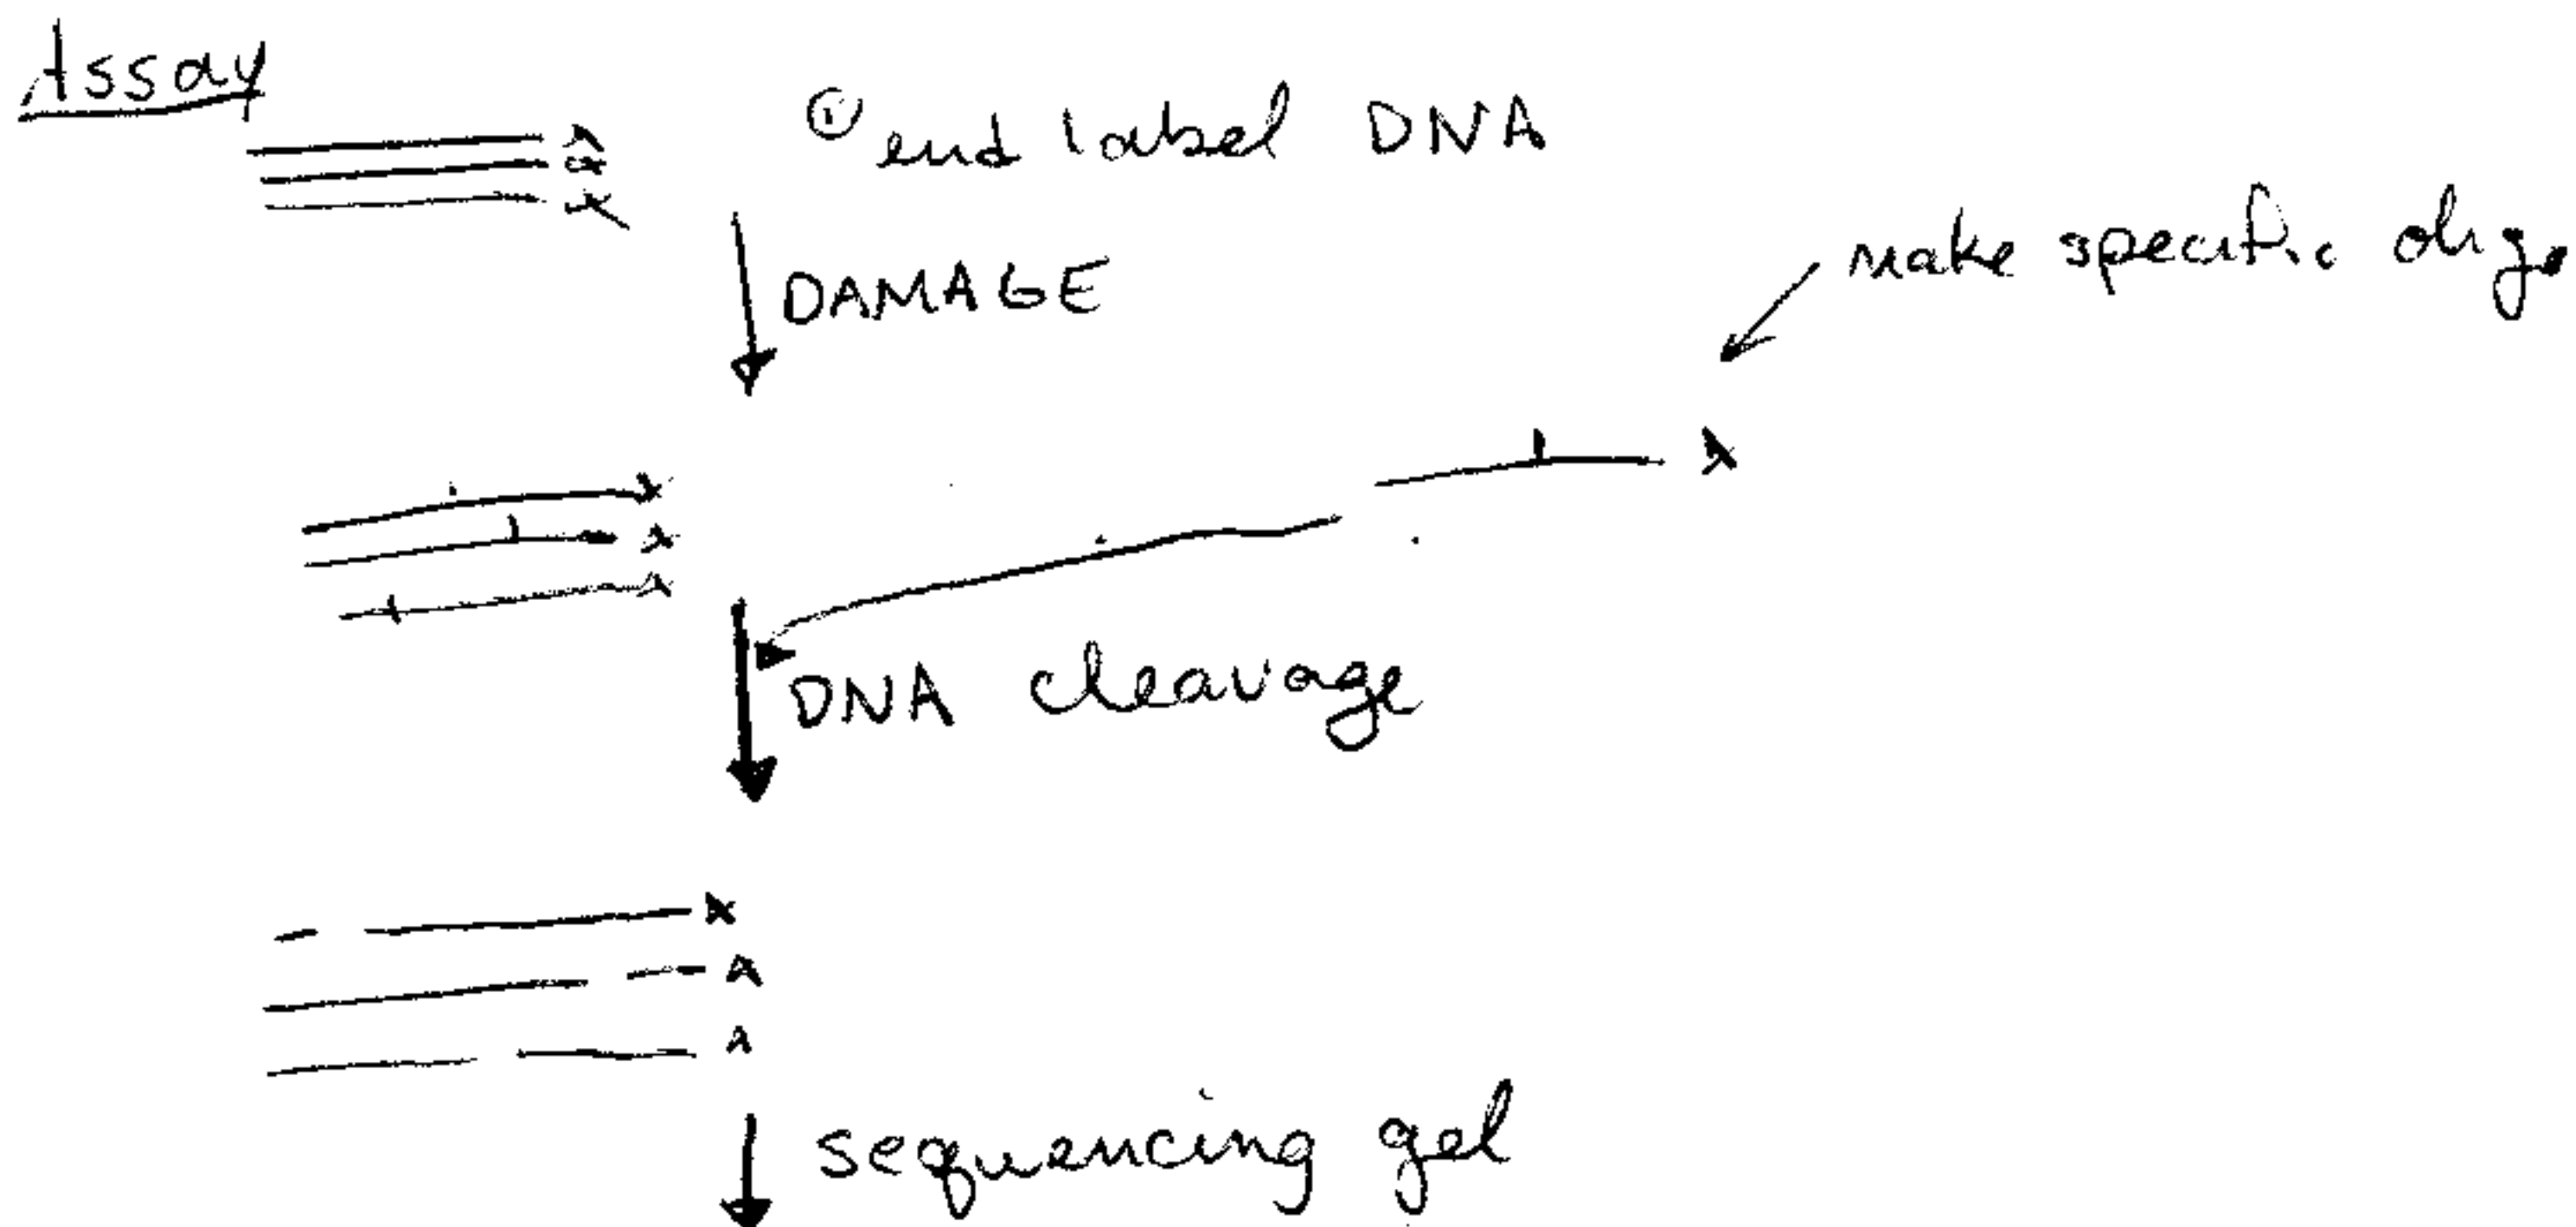 Assay
① end label DNA
DAMAGE
make specific oligo
DNA cleavage
sequencing gel